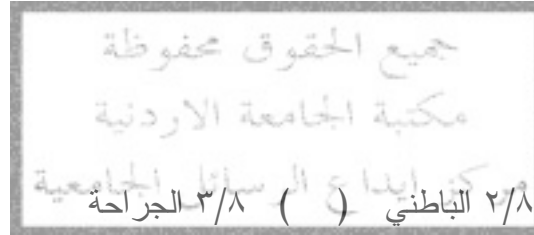 جميع الحقوق محفوظة
مكتبة الجامعة الاردنية
مركز ايداع الرسائل الجامعية
٢/٨ الباطني ( ) ٣/٨ الجراحة